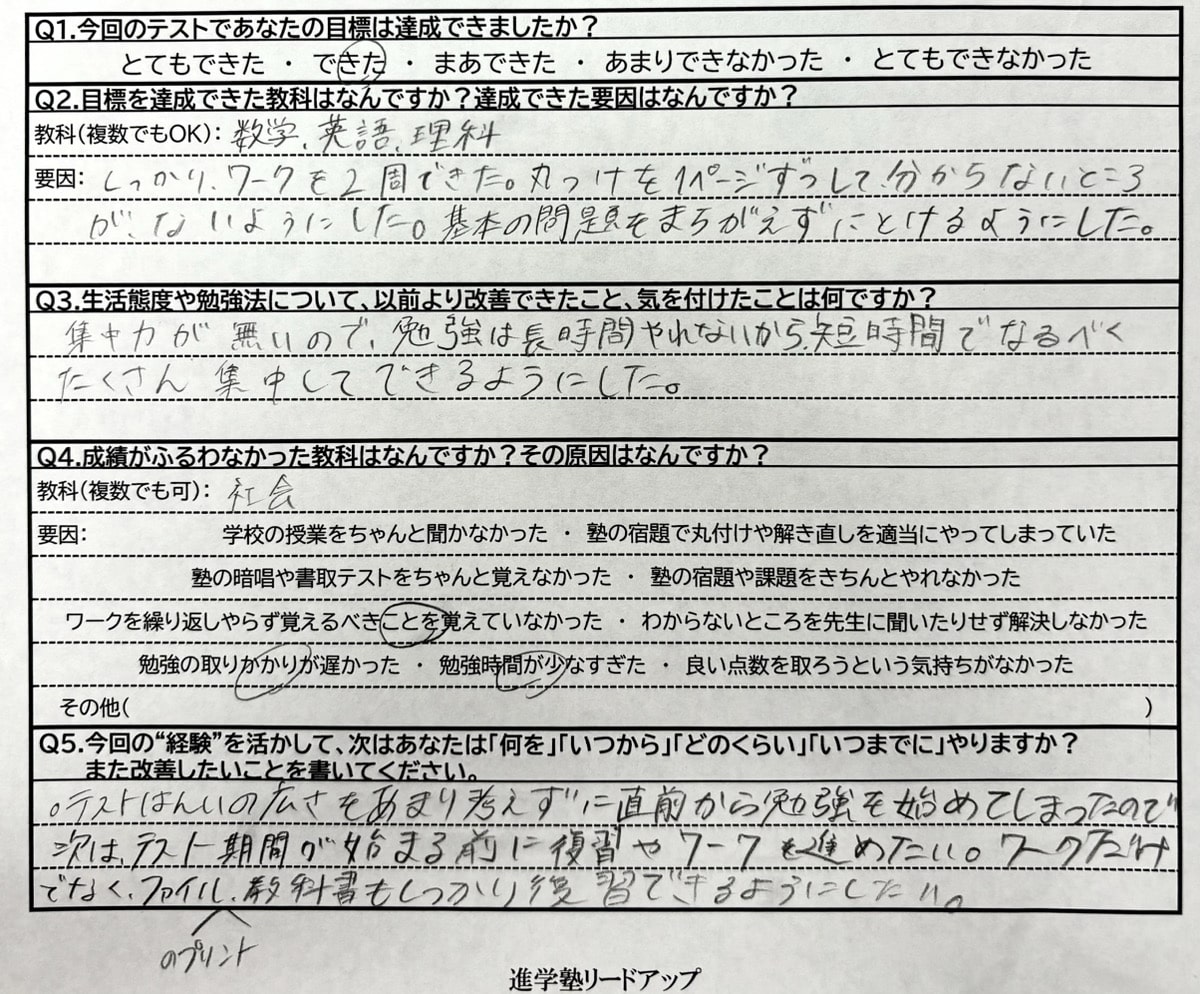 Q1.今回のテストであなたの目標は達成できましたか？
とてもできた ・ できた ・ まあできた ・ あまりできなかった ・ とてもできなかった
Q2.目標を達成できた教科はなんですか？達成できた要因はなんですか？
教科（複数でもOK）： 数学、英語、理科
要因： しっかり、ワークを2周できた。丸つけを1ページずつして、分からないところ
が、ないようにした。基本の問題をまちがえずにとけるようにした。
Q3.生活態度や勉強法について、以前より改善できたこと、気を付けたことは何ですか？
集中力が無いので、勉強は長時間やれないから、短時間でなるべく
たくさん集中してできるようにした。
Q4.成績がふるわなかった教科はなんですか？その原因はなんですか？
教科（複数でも可）： 社会
要因： 学校の授業をちゃんと聞かなかった ・ 塾の宿題で丸付けや解き直しを適当にやってしまっていた
塾の暗唱や書取テストをちゃんと覚えなかった ・ 塾の宿題や課題をきちんとやれなかった
ワークを繰り返しやらず覚えるべきことを覚えていなかった ・ わからないところを先生に聞いたりせず解決しなかった
勉強の取りかかりが遅かった ・ 勉強時間が少なすぎた ・ 良い点数を取ろうという気持ちがなかった
その他（ ）
Q5.今回の“経験”を活かして、次はあなたは「何を」「いつから」「どのくらい」「いつまでに」やりますか？
また改善したいことを書いてください。
。テストはんいの広さをあまり考えずに直前から勉強を始めてしまったので
次は、テスト期間が始まる前に復習やワークを進めたい。ワークだけ
でなく、ファイル、教科書もしっかり復習できるようにしたい。
のプリント
進学塾リードアップ